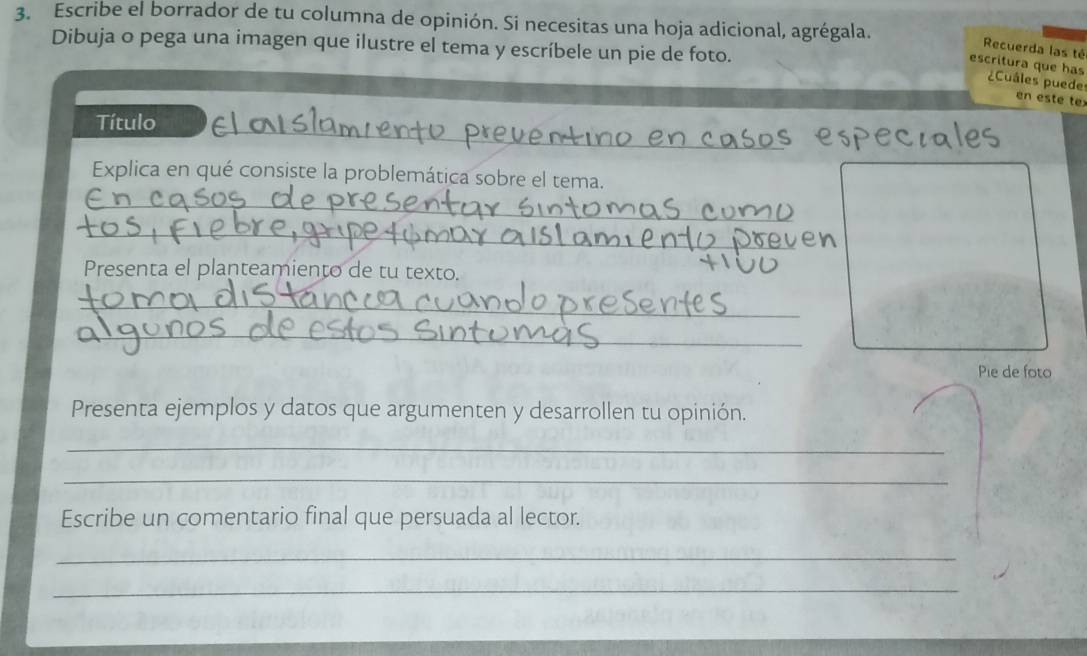 3. Escribe el borrador de tu columna de opinión. Si necesitas una hoja adicional, agrégala.
Dibuja o pega una imagen que ilustre el tema y escríbele un pie de foto.
Recuerda las té
escritura que has
¿Cuáles puede
en este te
Título El aislamiento preventino en casos especiales
Explica en qué consiste la problemática sobre el tema.
En casos de presentar sintomas como
tos, fiebre, gripe tomar aislamiento preven
tivo
Presenta el planteamiento de tu texto.
toma distancia cuando presentes
algunos de estos sintomas
Pie de foto
Presenta ejemplos y datos que argumenten y desarrollen tu opinión.
Escribe un comentario final que persuada al lector.